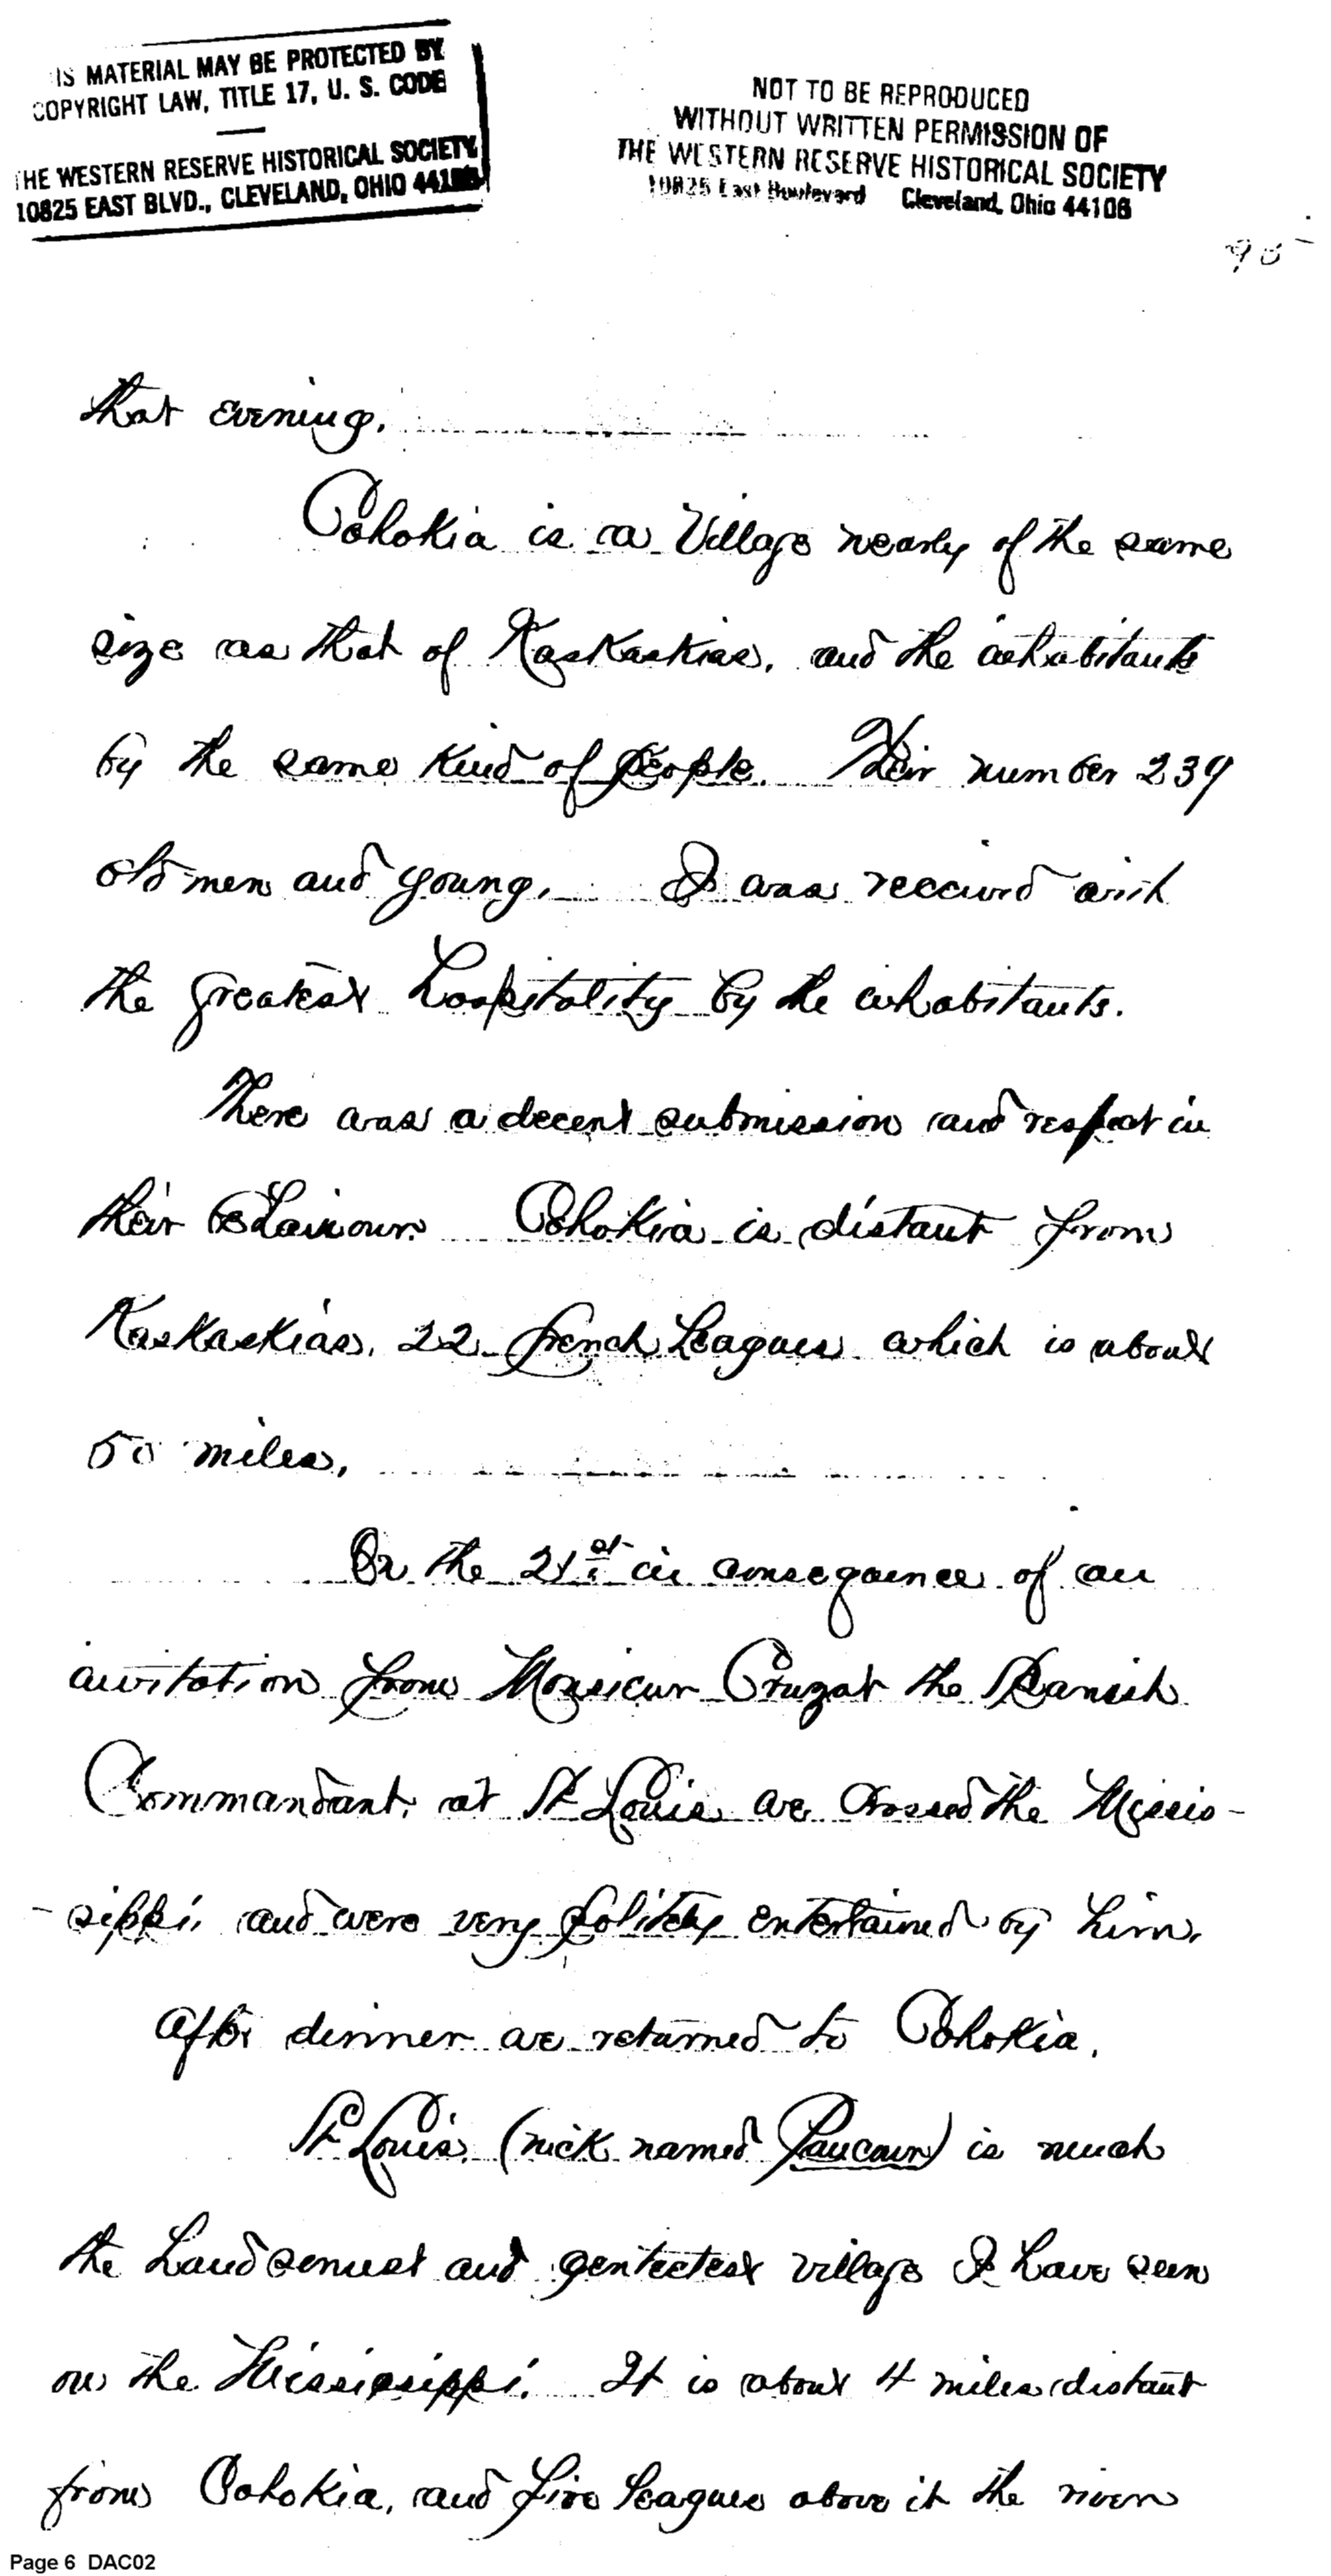 IS MATERIAL MAY BE PROTECTED BY
COPYRIGHT LAW, TITLE 17, U. S. CODE
THE WESTERN RESERVE HISTORICAL SOCIETY
10825 EAST BLVD., CLEVELAND, OHIO 44106
NOT TO BE REPRODUCED
WITHOUT WRITTEN PERMISSION OF
THE WESTERN RESERVE HISTORICAL SOCIETY
10825 East Boulevard Cleveland, Ohio 44106
that evening.
Cohokia is a Village nearly of the same
size as that of Kaskaskias, and the inhabitants
by the same kind of people. Their number 239
old men and young. I was received with
the greatest hospitality by the inhabitants.
There was a decent submission and respect in
their behaviour. Cohokia is distant from
Kaskaskias, 22 french Leagues which is about
50 miles.
On the 21st in consequence of an
invitation from Monsieur Cruzat the Spanish
Commandant, at St Louis we crossed the Missis-
-sippi, and were very politely entertained by him.
After dinner we returned to Cohokia.
St Louis, (nick named Paucour) is much
the handsomest and genteelest village I have seen
on the Mississippi. It is about 4 miles distant
from Cohokia, and five leagues above it the river
Page 6 DAC02